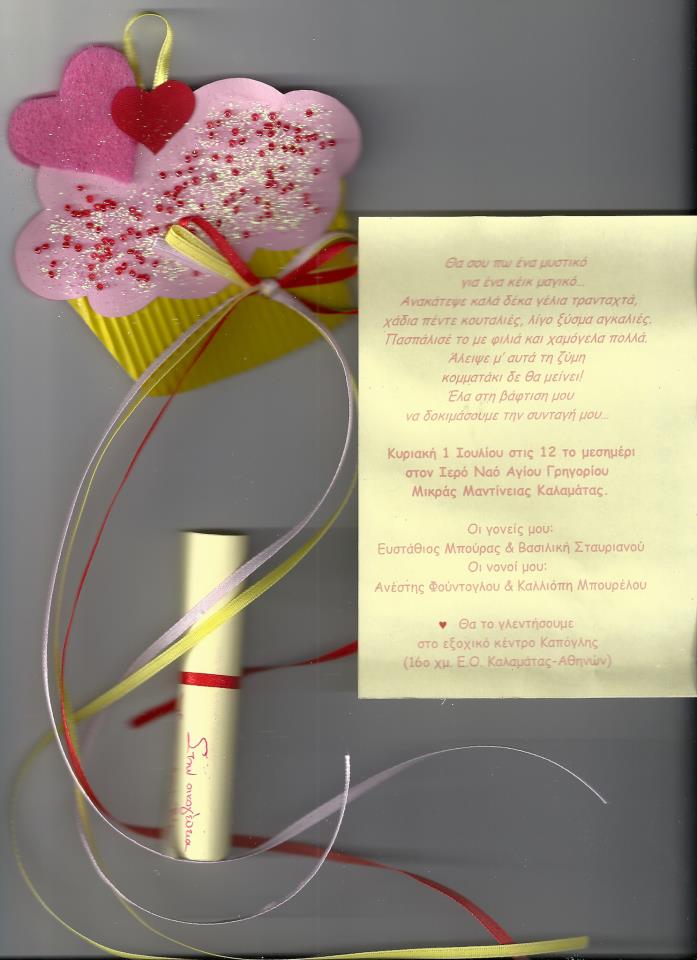 Θα σου πω ένα μυστικό
για ένα κέικ μαγικό...
Ανακάτεψε καλά δέκα γέλια τρανταχτά,
χάδια πέντε κουταλιές, λίγο ξύσμα αγκαλιές.
Πασπάλισέ το με φιλιά και χαμόγελα πολλά.
Άλειψε μ' αυτά τη ζύμη
κομματάκι δε θα μείνει!
Έλα στη βάφτιση μου
να δοκιμάσουμε την συνταγή μου...
Κυριακή 1 Ιουλίου στις 12 το μεσημέρι
στον Ιερό Ναό Αγίου Γρηγορίου
Μικράς Μαντίνειας Καλαμάτας.
Οι γονείς μου:
Ευστάθιος Μπούρας & Βασιλική Σταυριανού
Οι νονοί μου:
Ανέστης Φούντογλου & Καλλιόπη Μπουρέλου
♥ Θα το γλεντήσουμε
στο εξοχικό κέντρο Καπόγλης
(16ο χμ. Ε.Ο. Καλαμάτας-Αθηνών)
Στην οικογένεια